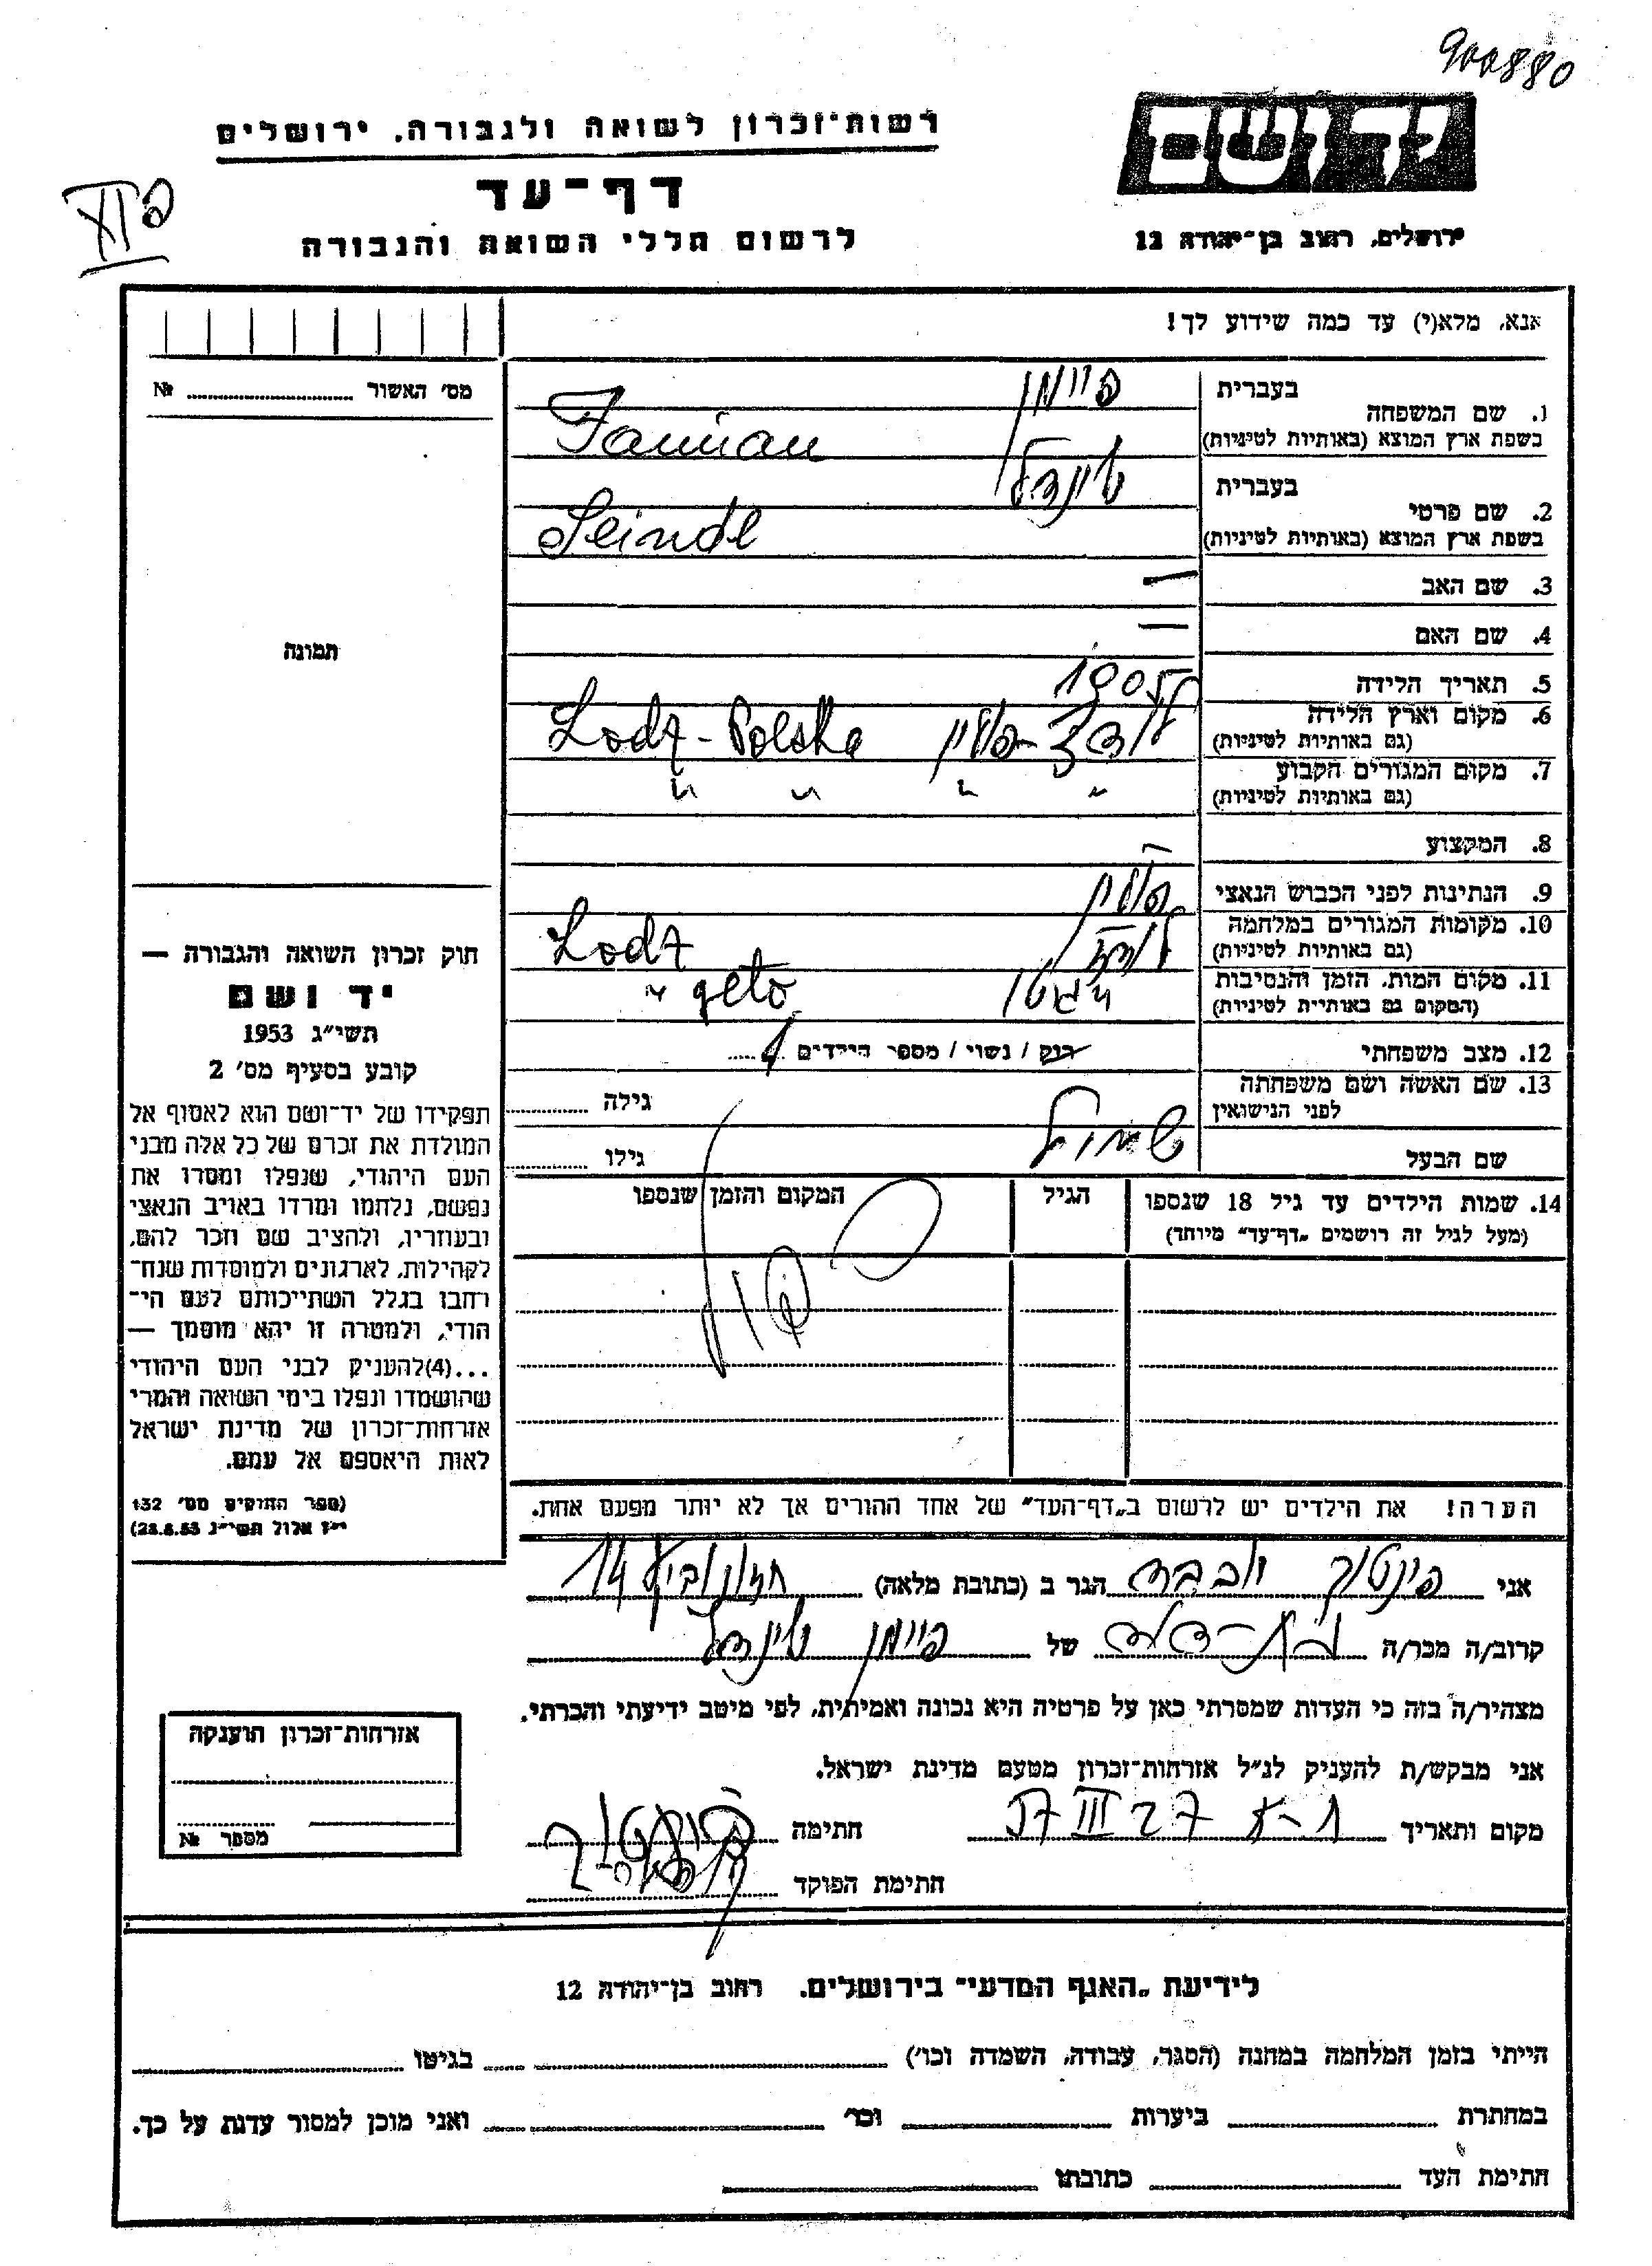 900880
יד ושם
רשות-זכרון לשואה ולגבורה, ירושלים
דף-עד
לרשום חללי השואה והגבורה
ירושלים, רחוב בן-יהודה 12
אנא, מלא(י) עד כמה שידוע לך!
מס' האשור ........ №
תמונה
1. שם המשפחה
בעברית פיימן
בשפת ארץ המוצא (באותיות לטיניות) Faiman
2. שם פרטי
בעברית שיינדל
בשפת ארץ המוצא (באותיות לטיניות) Seindl
3. שם האב —
4. שם האם —
5. תאריך הלידה 1905
6. מקום וארץ הלידה
(גם באותיות לטיניות) לודז - פולין Lodz - Polska
7. מקום המגורים הקבוע
(גם באותיות לטיניות) " " " "
8. המקצוע —
9. הנתינות לפני הכבוש הנאצי פולין
10. מקומות המגורים במלחמה
(גם באותיות לטיניות) לודז Lodz
11. מקום המות, הזמן והנסיבות
(המקום גם באותיות לטיניות) גטו " geto
12. מצב משפחתי רוק / נשוי / מספר הילדים 1
13. שם האשה ושם משפחתה
לפני הנישואין
גילה ........
שם הבעל שמואל
גילו ........
14. שמות הילדים עד גיל 18 שנספו
(מעל לגיל זה רושמים "דף-עד" מיוחד)
הגיל
המקום והזמן שנספו
חוק זכרון השואה והגבורה —
יד ושם
תשי"ג 1953
קובע בסעיף מס' 2
תפקידו של יד-ושם הוא לאסוף אל
המולדת את זכרם של כל אלה מבני
העם היהודי, שנפלו ומסרו את
נפשם, נלחמו ומרדו באויב הנאצי
ובעוזריו, ולהציב שם וזכר להם,
לקהילות, לארגונים ולמוסדות שנח־
רבו בגלל השתייכותם לעם הי־
הודי, ולמטרה זו יהא מוסמך —
...(4)להעניק לבני העם היהודי
שהושמדו ונפלו בימי השואה והמרי
אזרחות-זכרון של מדינת ישראל
לאות היאספם אל עמם.
(ספר החוקים מס' 132
י"ז אלול תשי"ג 28.8.53)
הערה! את הילדים יש לרשום ב"דף-העד" של אחד ההורים אך לא יותר מפעם אחת.
אני פינטוך הגר ב (כתובת מלאה) 14
קרוב/ה מכר/ה בת-דוד של פיימן שיינדל
מצהיר/ה בזה כי העדות שמסרתי כאן על פרטיה היא נכונה ואמיתית, לפי מיטב ידיעתי והכרתי.
אני מבקש/ת להעניק לנ"ל אזרחות-זכרון מטעם מדינת ישראל.
מקום ותאריך 27 III 57 חתימה
חתימת הפוקד
אזרחות-זכרון הוענקה
מספר №
לידיעת "האגף המדעי" בירושלים, רחוב בן-יהודה 12
הייתי בזמן המלחמה במחנה (הסגר, עבודה, השמדה וכו') ........ בגיטו ........
במחתרת ........ ביערות ........ וכו' ........ ואני מוכן למסור עדות על כך.
חתימת העד ........ כתובתו ........